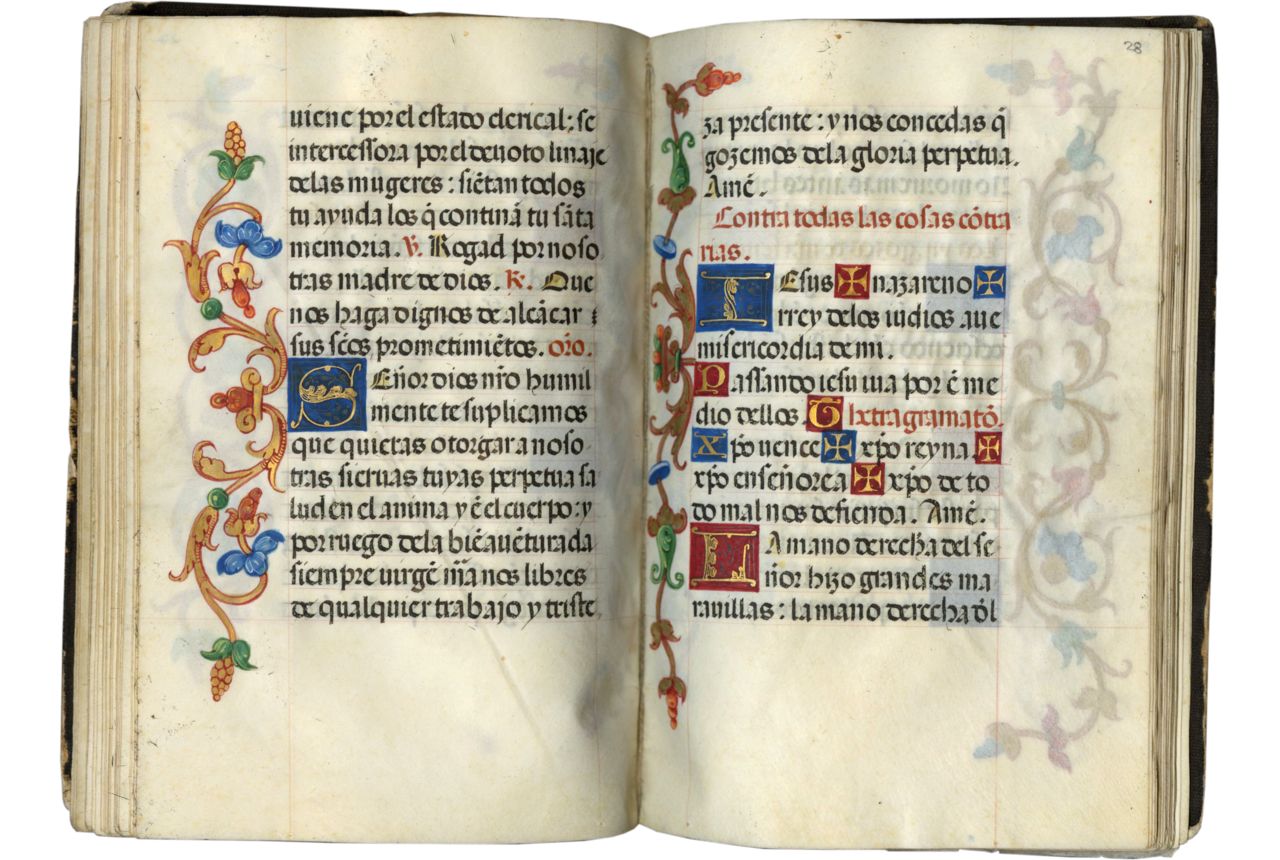 uiene por el estado clerical: se
intercessora por el deuoto linaje
delas mugeres: siētan todos
tu ayuda los q̄ continuā tu sāta
memoria. V. Rogad por noso
tras madre de dios. R. Que
nos haga dignos de alcācar
sus scōs prometimiētos. orō.
SEñor dios nr̄o humil
mente te suplicamos
que quieras otorgar a noso
tras sieruas tuyas perpetua sa
lud en el anima y ē el cuerpo: y
por ruego dela biē auēturada
siempre uirgē mīa nos libres
de qualquier trabajo y triste
28
za presente: y nos concedas q̄
gozemos dela gloria perpetua.
Amē.
Contra todas las cosas cōtra
rias.
IEsus ✠ nazareno ✠
rrey delos iudios aue
misericordia de mi.
Passando iesu iua por ē me
dio dellos. Thetragramatō.
xp̄o uence ✠ xp̄o reyna ✠
xp̄o enseñorea ✠ xp̄o de to
do mal nos defienda. Amē.
LA mano derecha del se
ñor hizo grandes ma
rauillas: la mano derecha d̄l